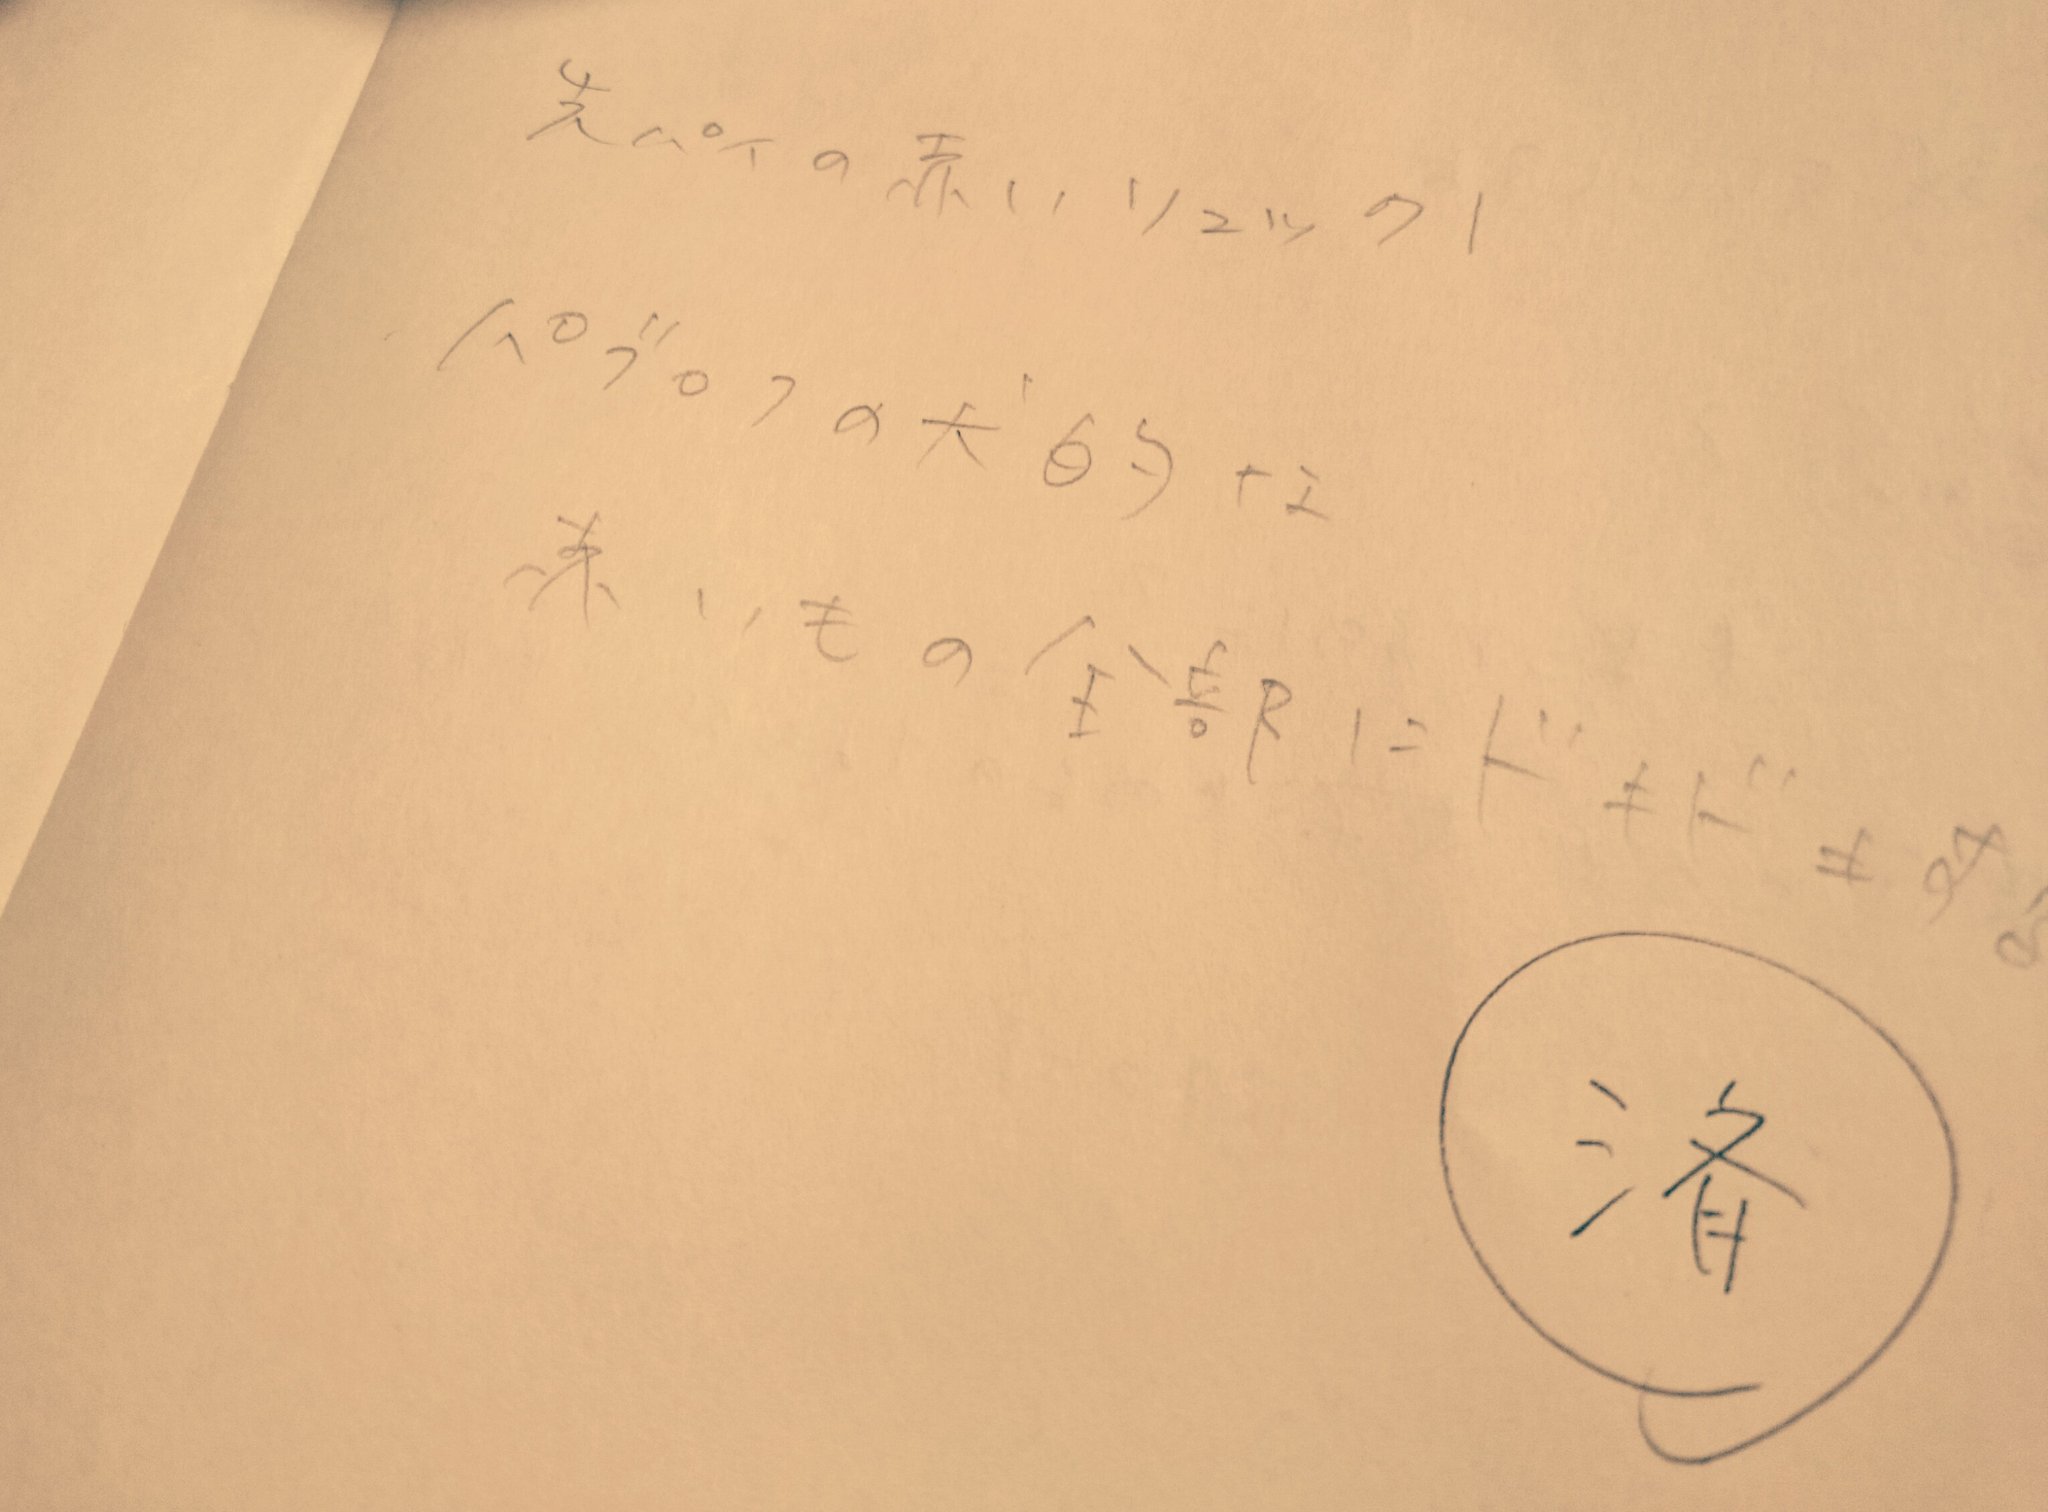 先パイの赤いリュック!
パブロフの犬的に
赤いもの全部にドキドキする
済